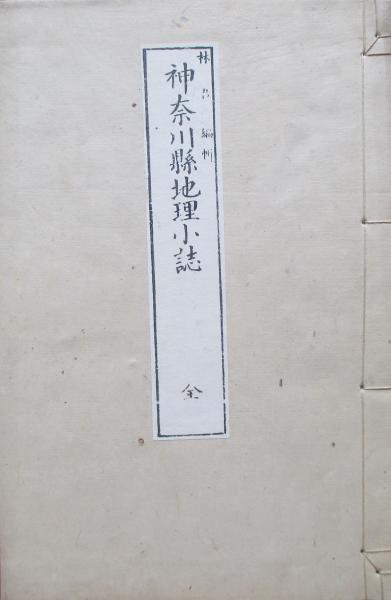 林 編輯
神奈川縣地理小誌
全